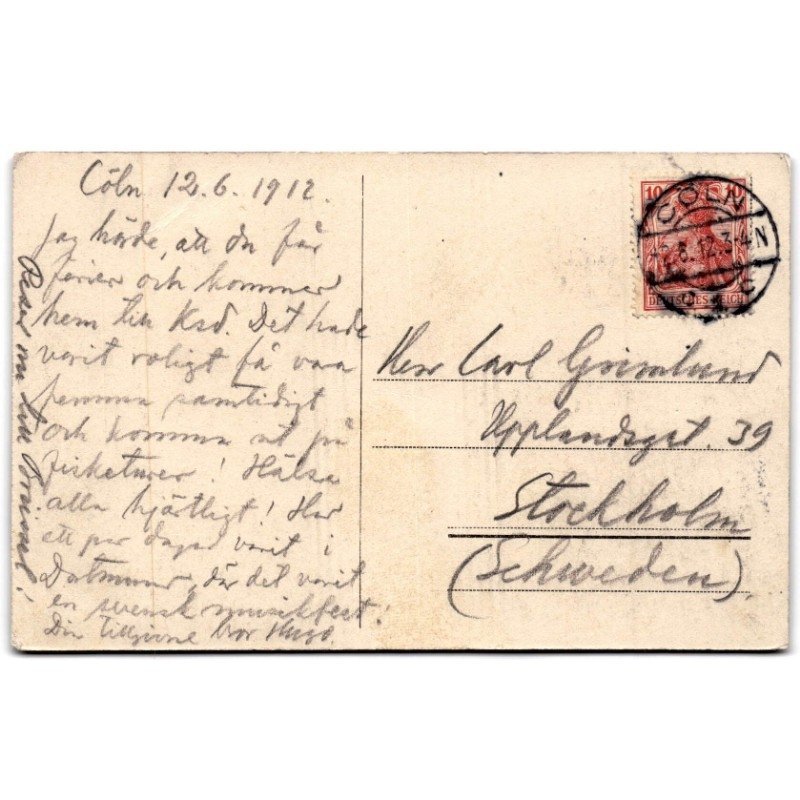 Cöln 12.6.1912.
Jag hörde, att du får
ferier och kommer
hem till Ksd. Det hade
varit roligt få vara
hemma samtidigt
och komma ut på
fisketurer! Hälsa
alla hjärtligt! Har
ett par dagar varit i
Dortmund, där det varit
en svensk musikfest!
Din tillgivne bror Hugo.
Reser nu till
10 10
DEUTSCHES REICH
CÖLN
12.6.12.3-4N
Herr Carl Grimlund
Upplandsgat. 39
Stockholm
(Schweden)